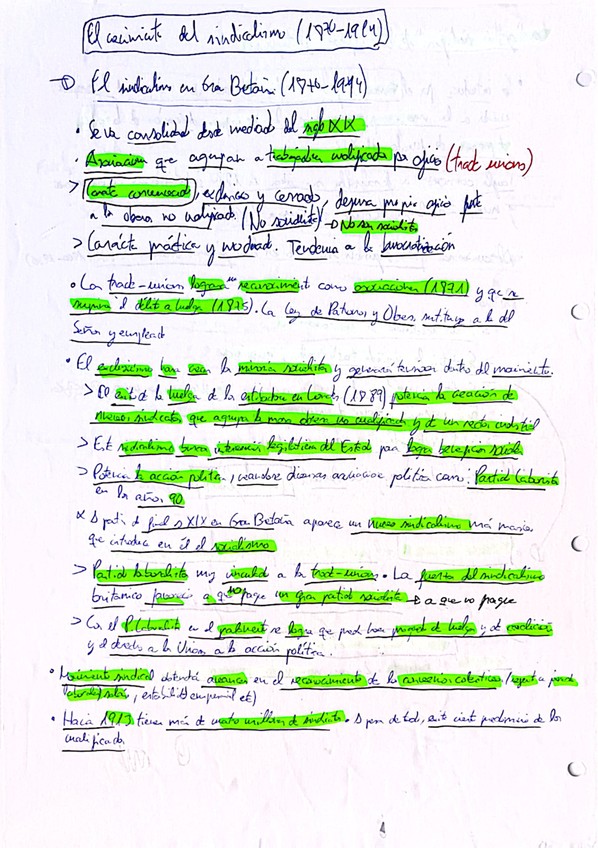 El nacimiento del sindicalismo (1870-1914)
① El sindicalismo en Gran Bretaña (1870-1914)
• Se va consolidad desde mediados del siglo XIX
• Asociación que agrupan a trabajadores cualificados por oficios (trade unions)
> Caracter conservador, exclusivo y cerrado, defensa propio oficio frente
a los obreros no cualificados. (No socialista) → No son socialistas
> Carácter práctico y moderad. Tendencia a la burocratización
• Las trade-unions logran su reconocimiento como asociaciones (1871) y que se
suprima el delito a huelga (1875). La Ley de Patronos y Obreros sustituye a la del
Señor y empleado
• El exclusivismo hace crear la minoria socialista y generará tensiones dentro del movimiento.
> El éxito de la huelga de los estibadores en Londres (1889) potencia la creación de
nuevos sindicatos que agrupa la masa obrera no cualificada y de un sector industrial
> Este sindicalismo busca intervención legislativa del Estado para lograr beneficios sociales
> Potencia la acción política, diversas asociaciones políticas como: Partido Laborista
en los años 90
A partir de final s XIX en Gran Betaña aparece un nuevo sindicalismo más masivo
que introduce en él el socialismo
> Partido laborista muy vinculado a la trade-unions. La fuerza del sindicalismo
británico a que no fague un gran partido socialista → a que no fague
> Con el P Laborista en el parlament se logra que pueda hacer de huelga y de
y el derecho a la Unions a la acción política.
• Movimiento sindical obtendrá avances en el reconocimiento de los convenios colectivos (respecto a jornada
laboral, salarios, estabilidad empresarial etc)
• Hacia 1913 tienen más de cuatro millones de sindicatos. A pesar de todo, existe cierto predominio de los
cualificados